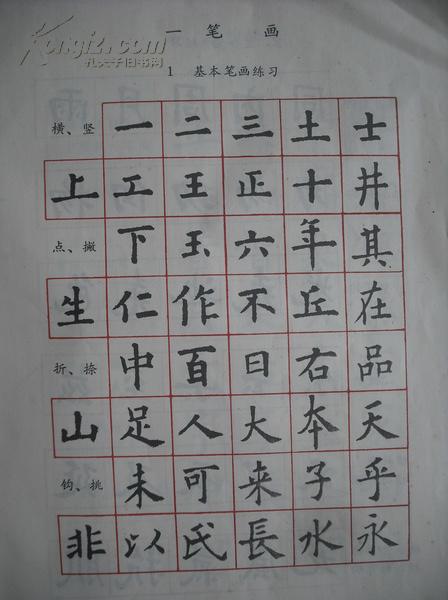 Kongfz.com
孔夫子旧书网
一 笔 画
1 基本笔画练习
横、竖 一 二 三 土 士
上 工 王 正 十 井
点、撇 下 玉 六 年 其
生 仁 作 不 丘 在
折、捺 中 百 日 右 品
山 足 人 大 本 天
钩、挑 未 可 来 子 乎
非 以 氏 長 水 永